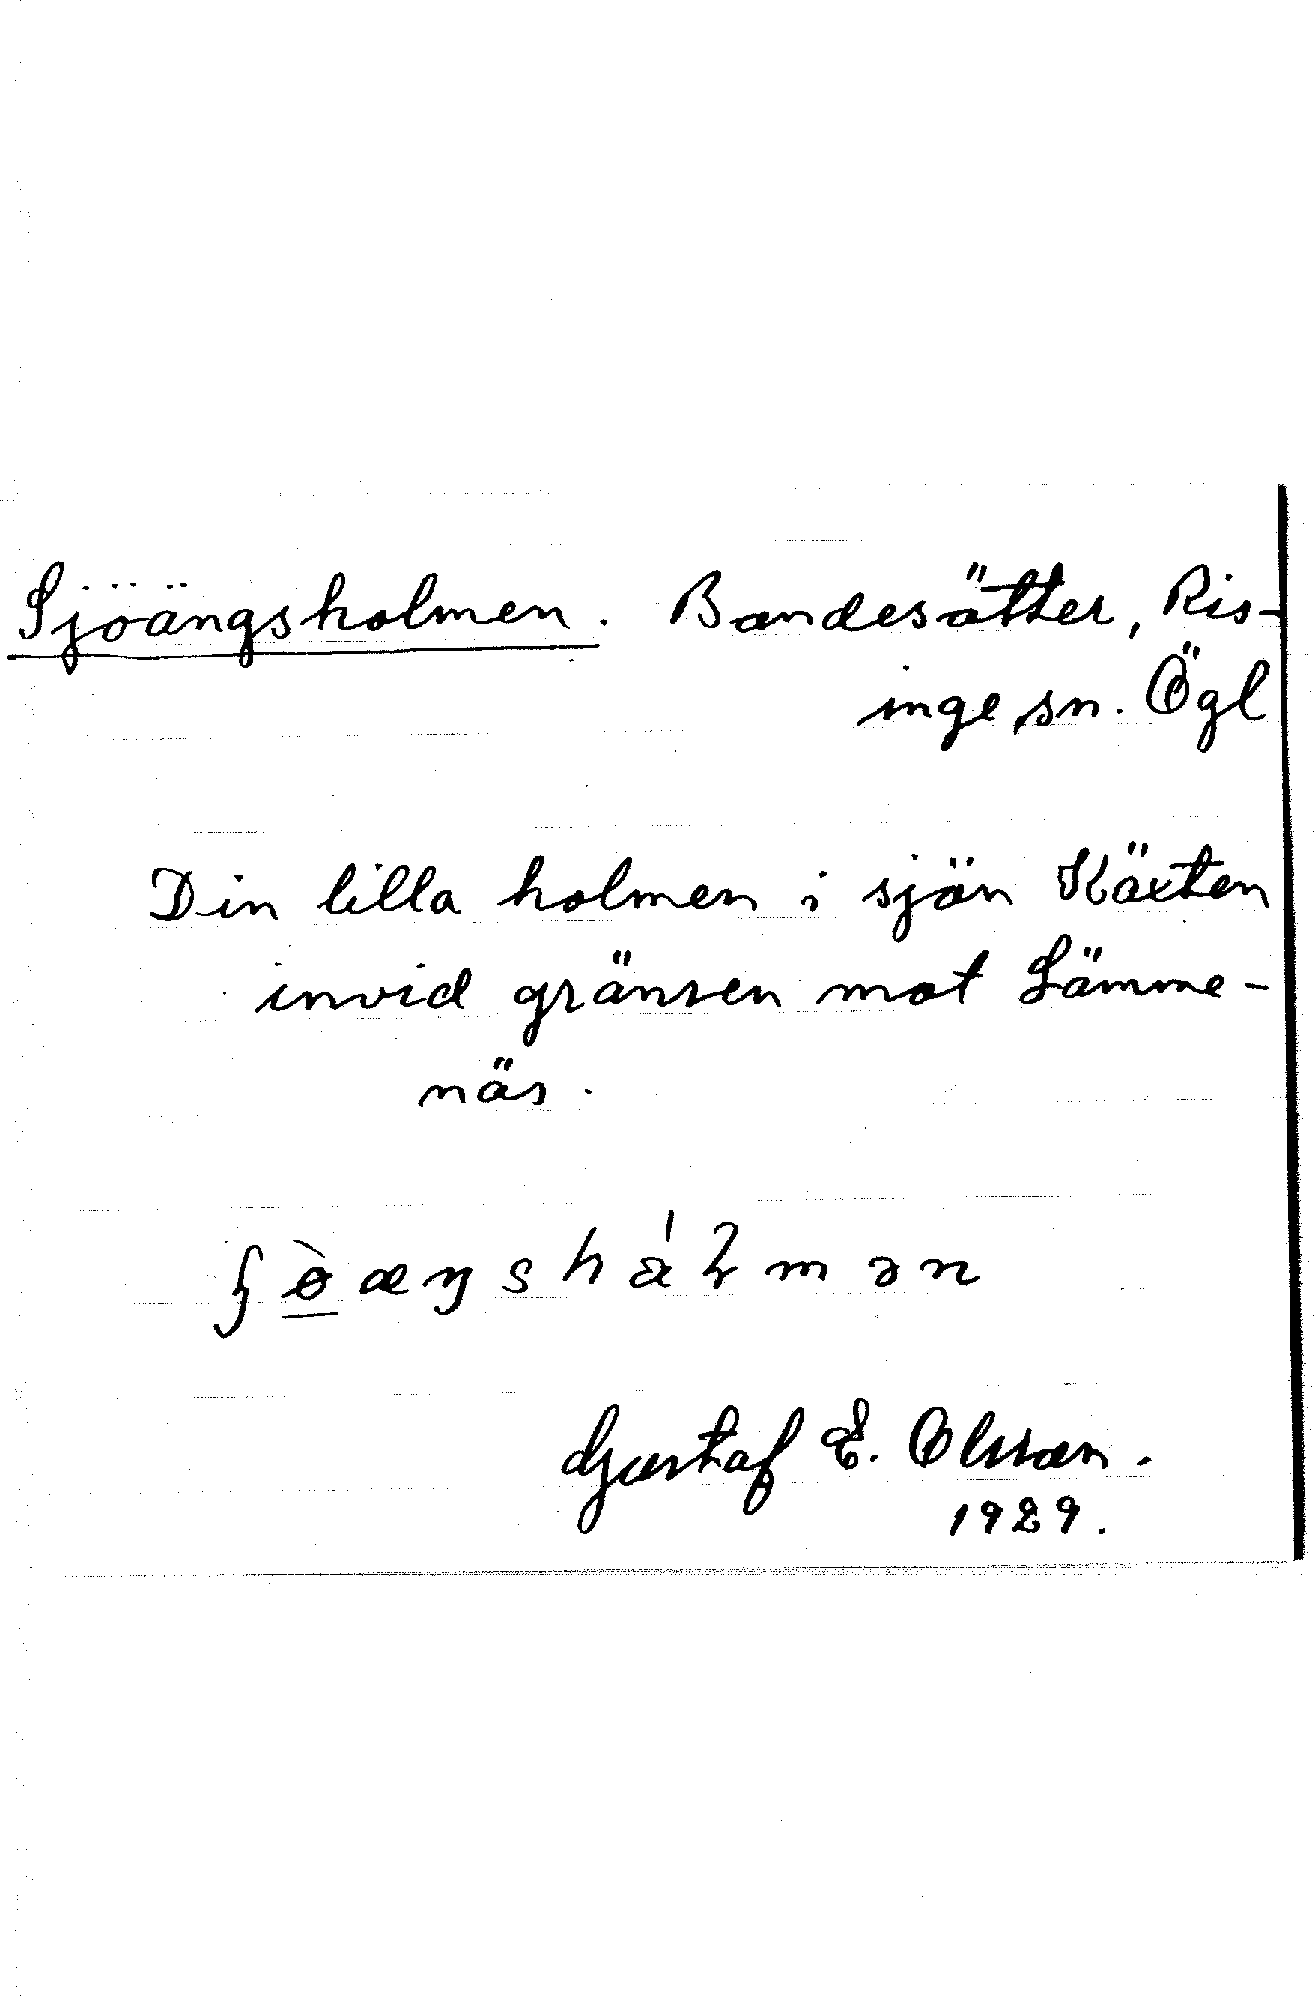 Sjöängsholmen. Bondesätter, Ris-
inge sn. Ögl
Din lilla holmen i sjön Käxten
invid gränsen mot Lämme-
näs.
Gustaf E. Olsson.
1929.